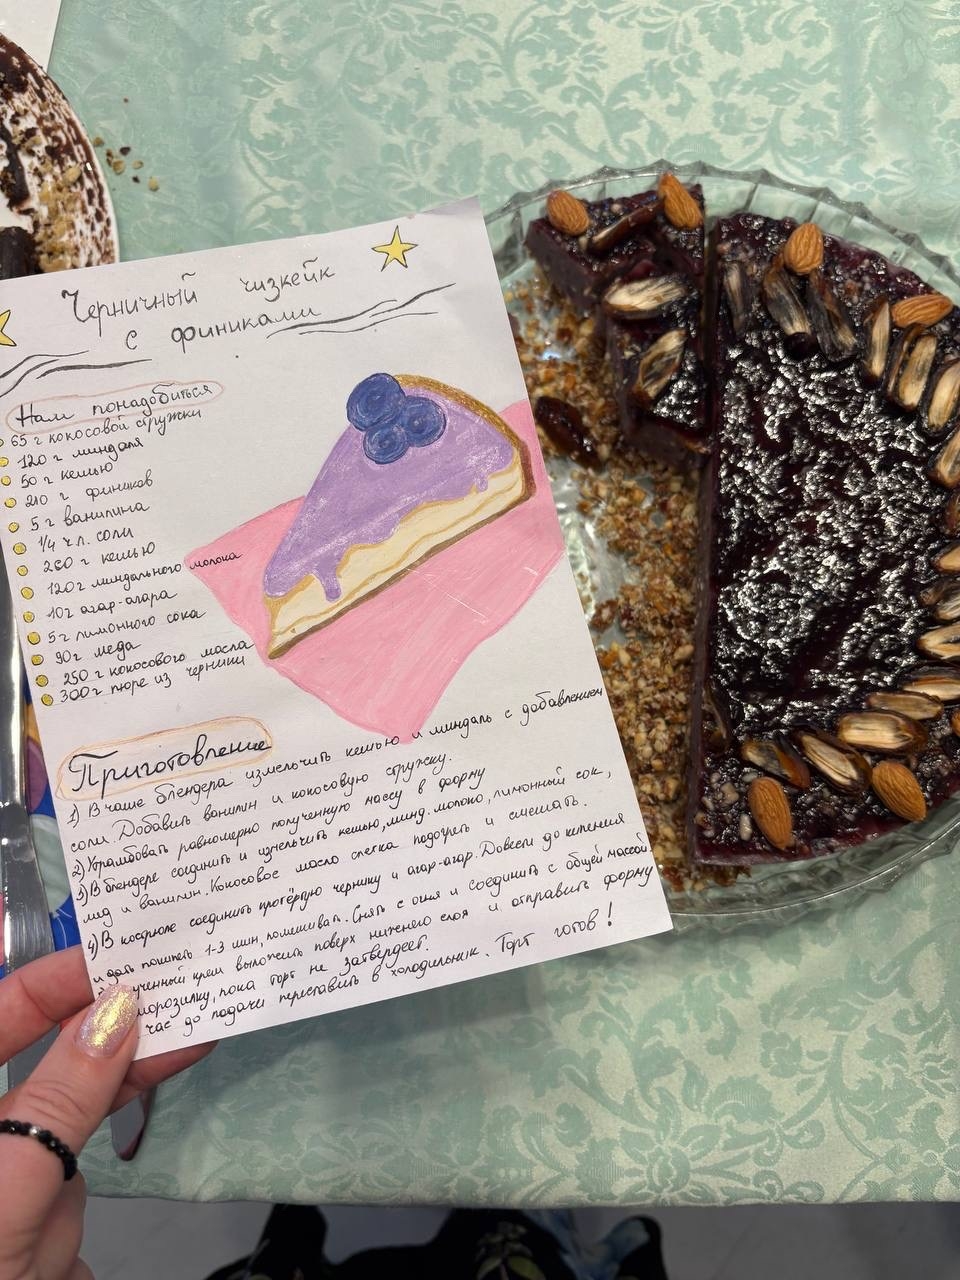 Черничный чизкейк
с финиками
Нам понадобиться
65 г кокосовой стружки
120 г миндаля
50 г кешью
210 г фиников
5 г ванилина
1/4 ч.л. соли
260 г кешью
120г миндального молока
10г агар-агара
5г лимонного сока
90г меда
250 г кокосового масла
300г пюре из черники
Приготовление
1) В чаше блендера измельчить кешью и миндаль с добавлением
соли. Добавить ванилин и кокосовую стружку.
2) Утрамбовать равномерно полученную массу в форму
3) В блендере соединить и измельчить кешью, минд. молоко, лимонный сок,
мед и ванилин. Кокосовое масло слегка подогреть и смешать.
4) В кастрюле соединить протёртую чернику и агар-агар. Довести до кипения
и дать покипеть 1-3 мин, помешивать. Снять с огня и соединить с общей массой
ученный крем выложить поверх нижнего слоя и отправить форму
морозилку, пока торт не затвердеет.
час до подачи переставить в холодильник. Торт готов!